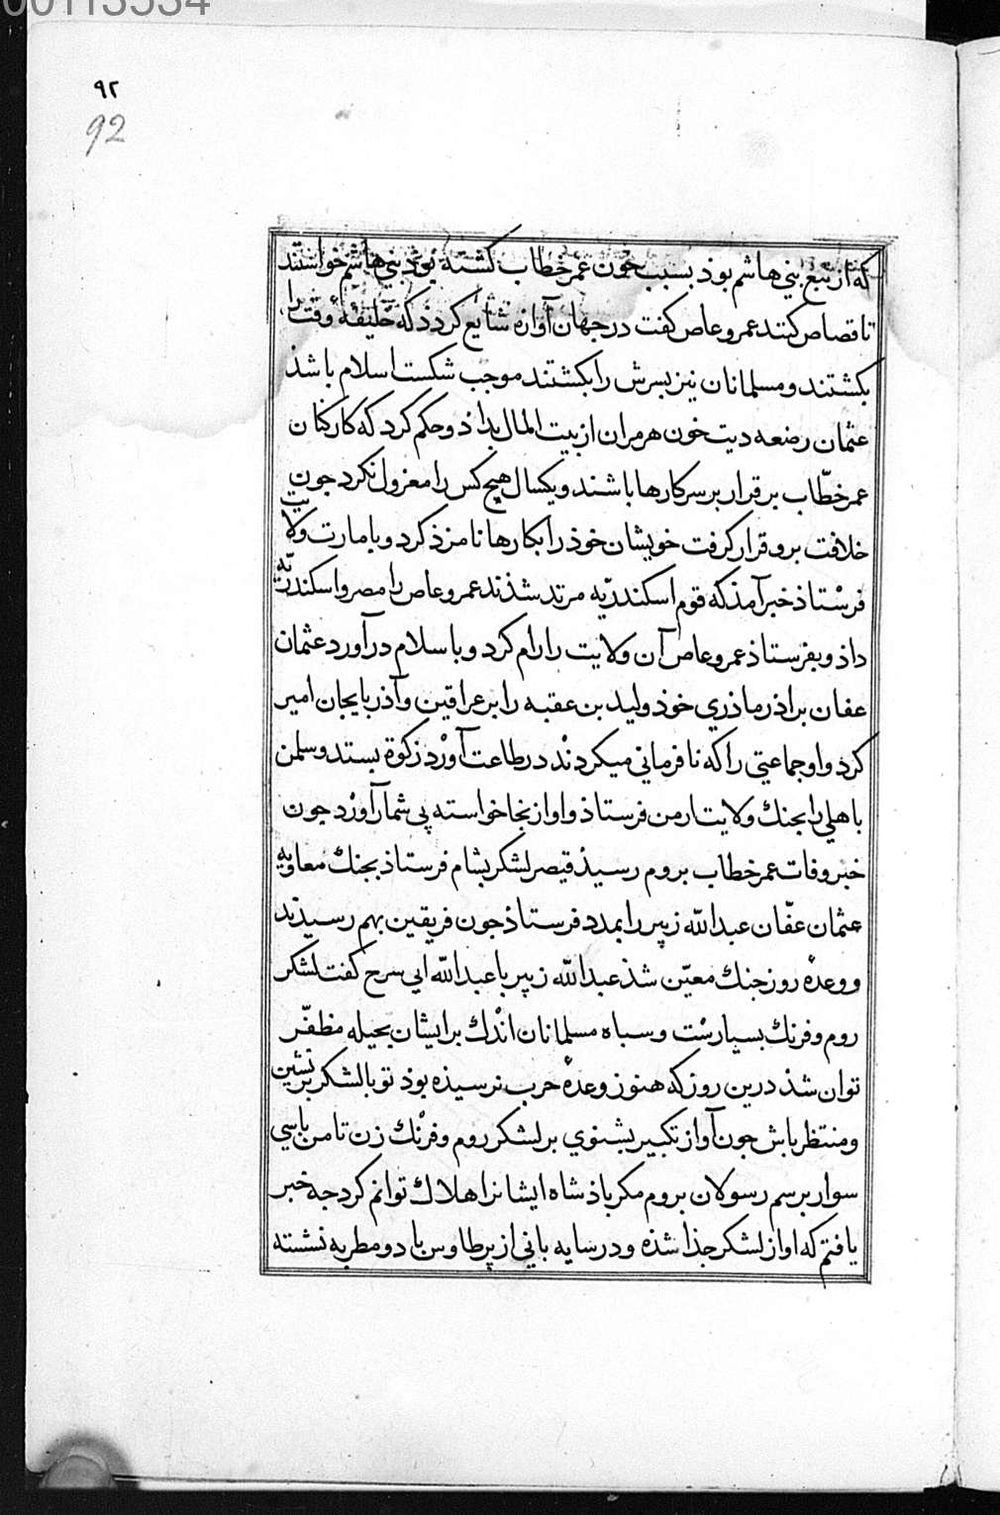 00113534
٩٢
92
که از تبع بني هاشم بوذ بسبب خون عمر خطاب کشته بوذ بني هاشم خواستند
تا قصاص کنند عمرو عاص کفت در جهان آوازه شایع کردذ که خلیفهٔ وقت را
بکشتند و مسلمانان نیز بسرش را بکشتند موجب شکست اسلام باشذ
عثمان رضعه دیت خون هرمزان از بیت المال بداذ و حکم کرد که کارکنان
عمر خطّاب برقرار بر سر کارها باشند و یکسال هیچ کس را معزول نکرد جون
خلافت برو قرار کرفت خویشان خوذ را بکارها نامزذ کرد و بامارت ولایت
فرستاذ خبر آمذ که قوم اسکندریّه مرتد شذند عمرو عاص را مصر و اسکندریّه
داذ و بفرستاذ عمرو عاص آن ولایت را رام کرد و باسلام در آورد عثمان
عفان براذر ماذري خوذ ولید بن عقبه را بر عراقین و آذربایجان امیر
کرد و او جماعتي را که نافرماني میکردند در طاعت آورد زکوة بستد و سلمن
باهلي را بجنك ولایت ارمن فرستاذ و او از نجا خواسته بی شمار آورد جون
خبر وفات عمر خطاب بروم رسیذ قیصر لشکر بشام فرستاذ بجنك معاویه
عثمان عفّان عبدالله زبیر را بمدد فرستاذ جون فریقین بهم رسیدند
و وعدهٔ روز جنك معیّن شذ عبدالله زبیر با عبدالله ابي سرح کفت لشکر
روم و فرنك بسیارست و سباه مسلمانان اندك بر ایشان بحیله مظفّر
توان شذ درین روز که هنوز وعدهٔ حرب نرسیذه بوذ تو با لشکر برنشین
و منتظر باش جون آواز تکبیر بشنوي بر لشکر روم و فرنك زن تا من با سي
سوار برسم رسولان بروم مکر باذشاه ایشانرا هلاك توانم کرد جه خبر
یافتم که او از لشکر جذا شذه و در سایه باني از پر طاوس با دو مطربه نشسته